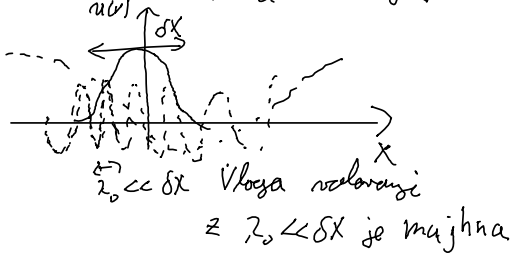 u(x)
δX
X
λ₀ << δX Vloga valovanj
z λ₀ << δX je majhna